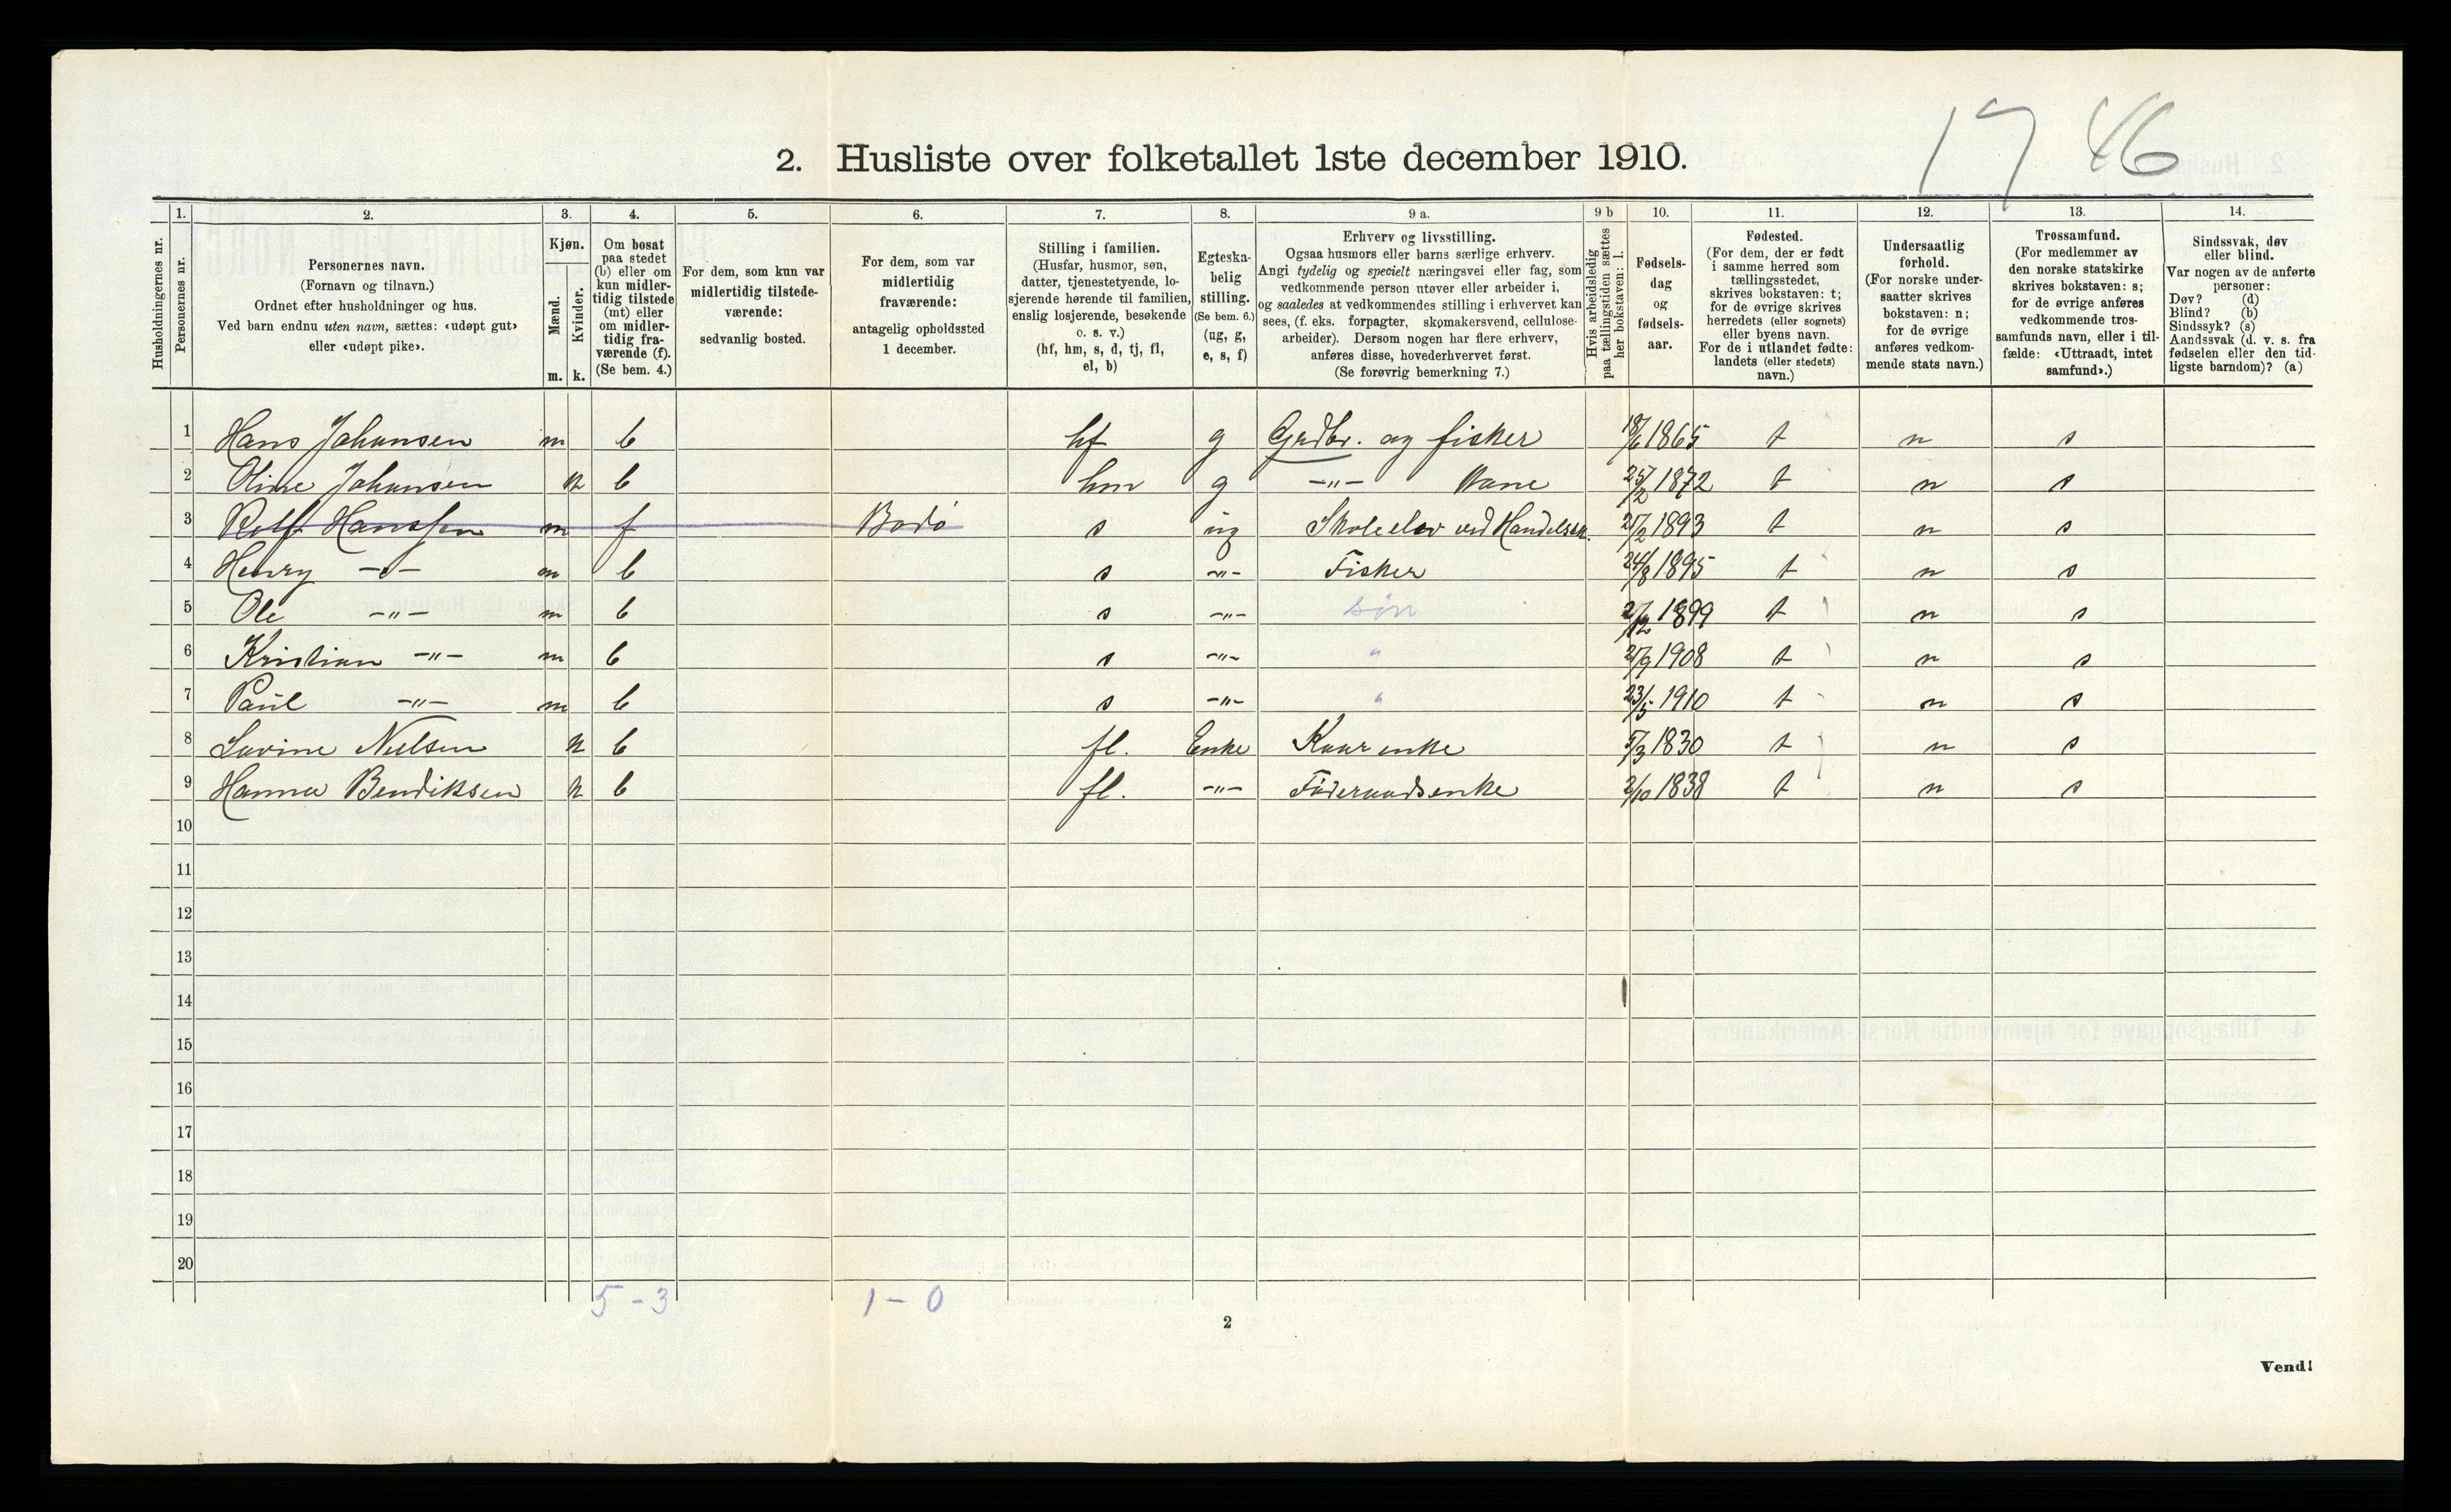 17 46
2. Husliste over folketallet 1ste december 1910.
Husholdningernes nr.
1.
Personernes nr.
2.
Personernes navn.
(Fornavn og tilnavn.)
Ordnet efter husholdninger og hus.
Ved barn endnu uten navn, sættes: «udøpt gut»
eller «udøpt pike».
3.
Kjøn.
Mænd.
Kvinder.
m. k.
4.
Om bosat
paa stedet
(b) eller om
kun midler-
tidig tilstede
(mt) eller
om midler-
tidig fra-
værende (f).
(Se bem. 4.)
5.
For dem, som kun var
midlertidig tilstede-
værende:
sedvanlig bosted.
6.
For dem, som var
midlertidig
fraværende:
antagelig opholdssted
1 december.
7.
Stilling i familien.
(Husfar, husmor, søn,
datter, tjenestetyende, lo-
sjerende hørende til familien,
enslig losjerende, besøkende
o. s. v.)
(hf, hm, s, d, tj, fl,
el, b)
8.
Egteska-
belig
stilling.
(Se bem. 6.)
(ug, g,
e, s, f)
9 a.
Erhverv og livsstilling.
Ogsaa husmors eller barns særlige erhverv.
Angi tydelig og specielt næringsvei eller fag, som
vedkommende person utøver eller arbeider i,
og saaledes at vedkommendes stilling i erhvervet kan
sees, (f. eks. forpagter, skomakersvend, cellulose-
arbeider). Dersom nogen har flere erhverv,
anføres disse, hovederhvervet først.
(Se forøvrig bemerkning 7.)
9 b
Hvis arbeidsledig
paa tællingstiden sættes
her bokstaven: l.
10.
Fødsels-
dag
og
fødsels-
aar.
11.
Fødested.
(For dem, der er født
i samme herred som
tællingsstedet,
skrives bokstaven: t;
for de øvrige skrives
herredets (eller sognets)
eller byens navn.
For de i utlandet fødte:
landets (eller stedets)
navn.)
12.
Undersaatlig
forhold.
(For norske under-
saatter skrives
bokstaven: n;
for de øvrige
anføres vedkom-
mende stats navn.)
13.
Trossamfund.
(For medlemmer av
den norske statskirke
skrives bokstaven: s;
for de øvrige anføres
vedkommende tros-
samfunds navn, eller i til-
fælde: «Uttraadt, intet
samfund».)
14.
Sindssvak, døv
eller blind.
Var nogen av de anførte
personer:
Døv? (d)
Blind? (b)
Sindssyk? (s)
Aandssvak (d. v. s. fra
fødselen eller den tid-
ligste barndom)? (a)
1 Hans Johansen m b hf g Grdbr. og fisker 18/6 1865 t n s
2 Oline Johansen k b hm g -"- Kone 25/2 1872 t n s
3 Rolf Hanssen m f Bodø s ug Skoleelev ved Handelssk. 1893 t n s
4 Henry -"- m b s -"- Fisker 24/8 1895 t n s
5 Ole -"- m b s -"- søn 1899 t n s
6 Kristian -"- m b s -"- " 1908 t n s
7 Paul -"- m b s -"- " 23/5 1910 t n s
8 Lovine Nielsen k b fl. Enke Kaarenke 5/3 1830 t n s
9 Hanna Bendiksen k b fl. -"- Føderaadsenke 2/10 1838 t n s
10
11
12
13
14
15
16
17
18
19
20
5 - 3 1 - 0
2
Vend!